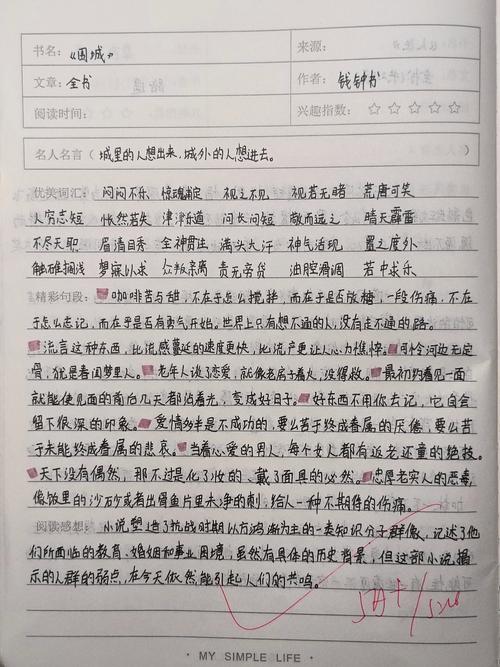 书名：《围城》 来源：
文章：全书 作者：钱钟书
阅读时间： 兴趣指数：☆☆☆☆☆
名人名言（城里的人想出来，城外的人想进去。 ）
优美词汇： 闷闷不乐 惊魂甫定 视之不见 视若无睹 荒唐可笑
人穷志短 怅然若失 津津乐道 问长问短 敬而远之 晴天霹雳
不尽天职 眉清目秀 全神贯注 满头大汗 神气活现 置之度外
触礁搁浅 梦寐以求 众叛亲离 责无旁贷 油腔滑调 苦中求乐
精彩句段： 咖啡苦与甜，不在于怎么搅拌，而在于是否放糖，一段伤痛，不在
于怎么忘记，而在于是否有勇气开始。世界上只有想不通的人，没有走不通的路。
流言这种东西，比流感蔓延的速度更快，比流产更让人心力憔悴。可怜河边无定
骨，犹是春闺梦里人。老年人谈恋爱，就像老房子着火，没得救。最初约着见一面
就能使见面的前后几天都沾着光，变成好日子。好东西不用你去记，它自会
留下很深的印象。爱情多半是不成功的，要么苦于终成眷属的厌倦，要么苦
于未能终成眷属的悲哀。当着心爱的男人，每个女人都有返老还童的绝技。
天下没有偶然，那不过是化了妆的、戴了面具的必然。忠厚老实人的恶毒，
像饭里的沙石砂或者出骨鱼片里未净的刺，给人一种不期待的伤痛。
阅读感想：小说塑造了抗战时期以方鸿渐为主的一类知识分子群像，记述了他
们所面临的教育、婚姻和事业困境，虽然有具体的历史背景，但这部小说揭
示的人群的弱点，在今天依然能引起人们的共鸣。
· MY SIMPLE LIFE ·